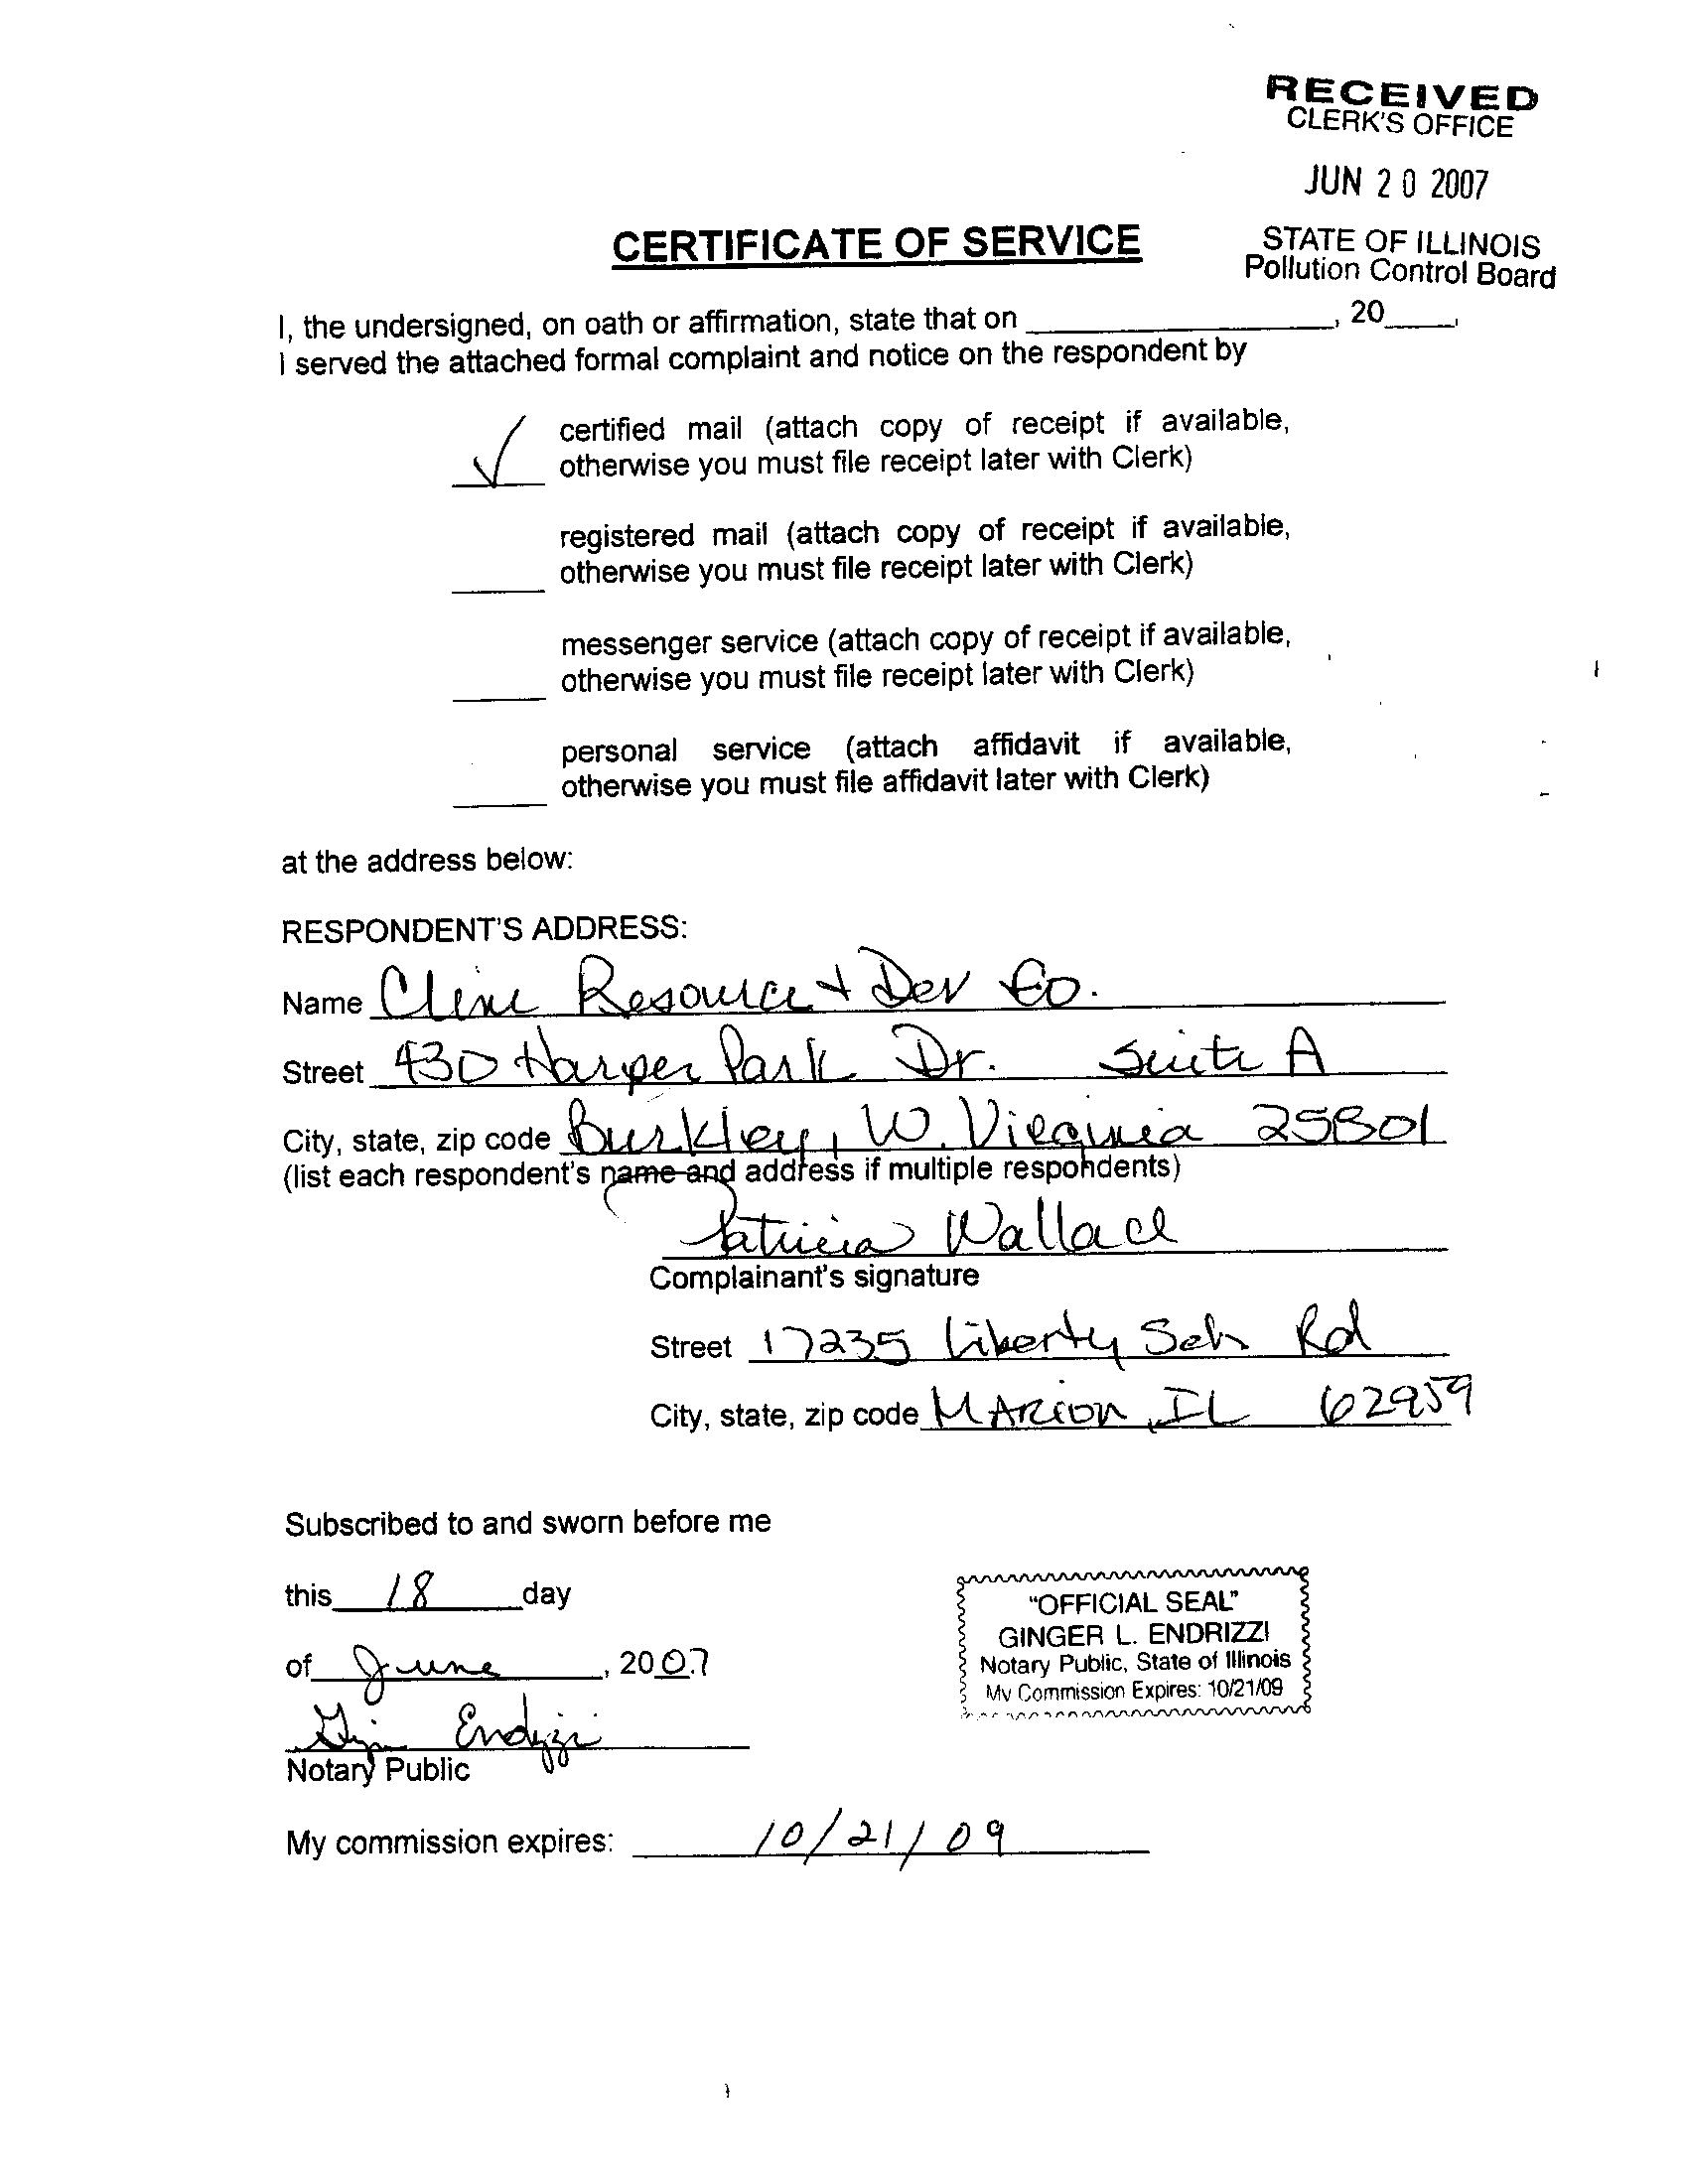 RECEIVED
CLERK'S OFFICE
JUN 20 2007
STATE OF ILLINOIS
Pollution Control Board
CERTIFICATE OF SERVICE
I, the undersigned, on oath or affirmation, state that on ____________, 20____,
I served the attached formal complaint and notice on the respondent by
✓ certified mail (attach copy of receipt if available,
otherwise you must file receipt later with Clerk)
registered mail (attach copy of receipt if available,
otherwise you must file receipt later with Clerk)
messenger service (attach copy of receipt if available,
otherwise you must file receipt later with Clerk)
personal service (attach affidavit if available,
otherwise you must file affidavit later with Clerk)
at the address below:
RESPONDENT'S ADDRESS:
Name Cline Resource + Dev Co.
Street 430 Harper Park Dr. Suite A
City, state, zip code Burkley, W. Virginia 25801
(list each respondent's name and address if multiple respondents)
Patricia Wallace
Complainant's signature
Street 17235 Liberty Sch Rd
City, state, zip code Marion, IL 62959
Subscribed to and sworn before me
this 18 day
of June, 2007
"OFFICIAL SEAL"
GINGER L. ENDRIZZI
Notary Public, State of Illinois
My Commission Expires: 10/21/09
Endrizzi
Notary Public
My commission expires: 10/21/09